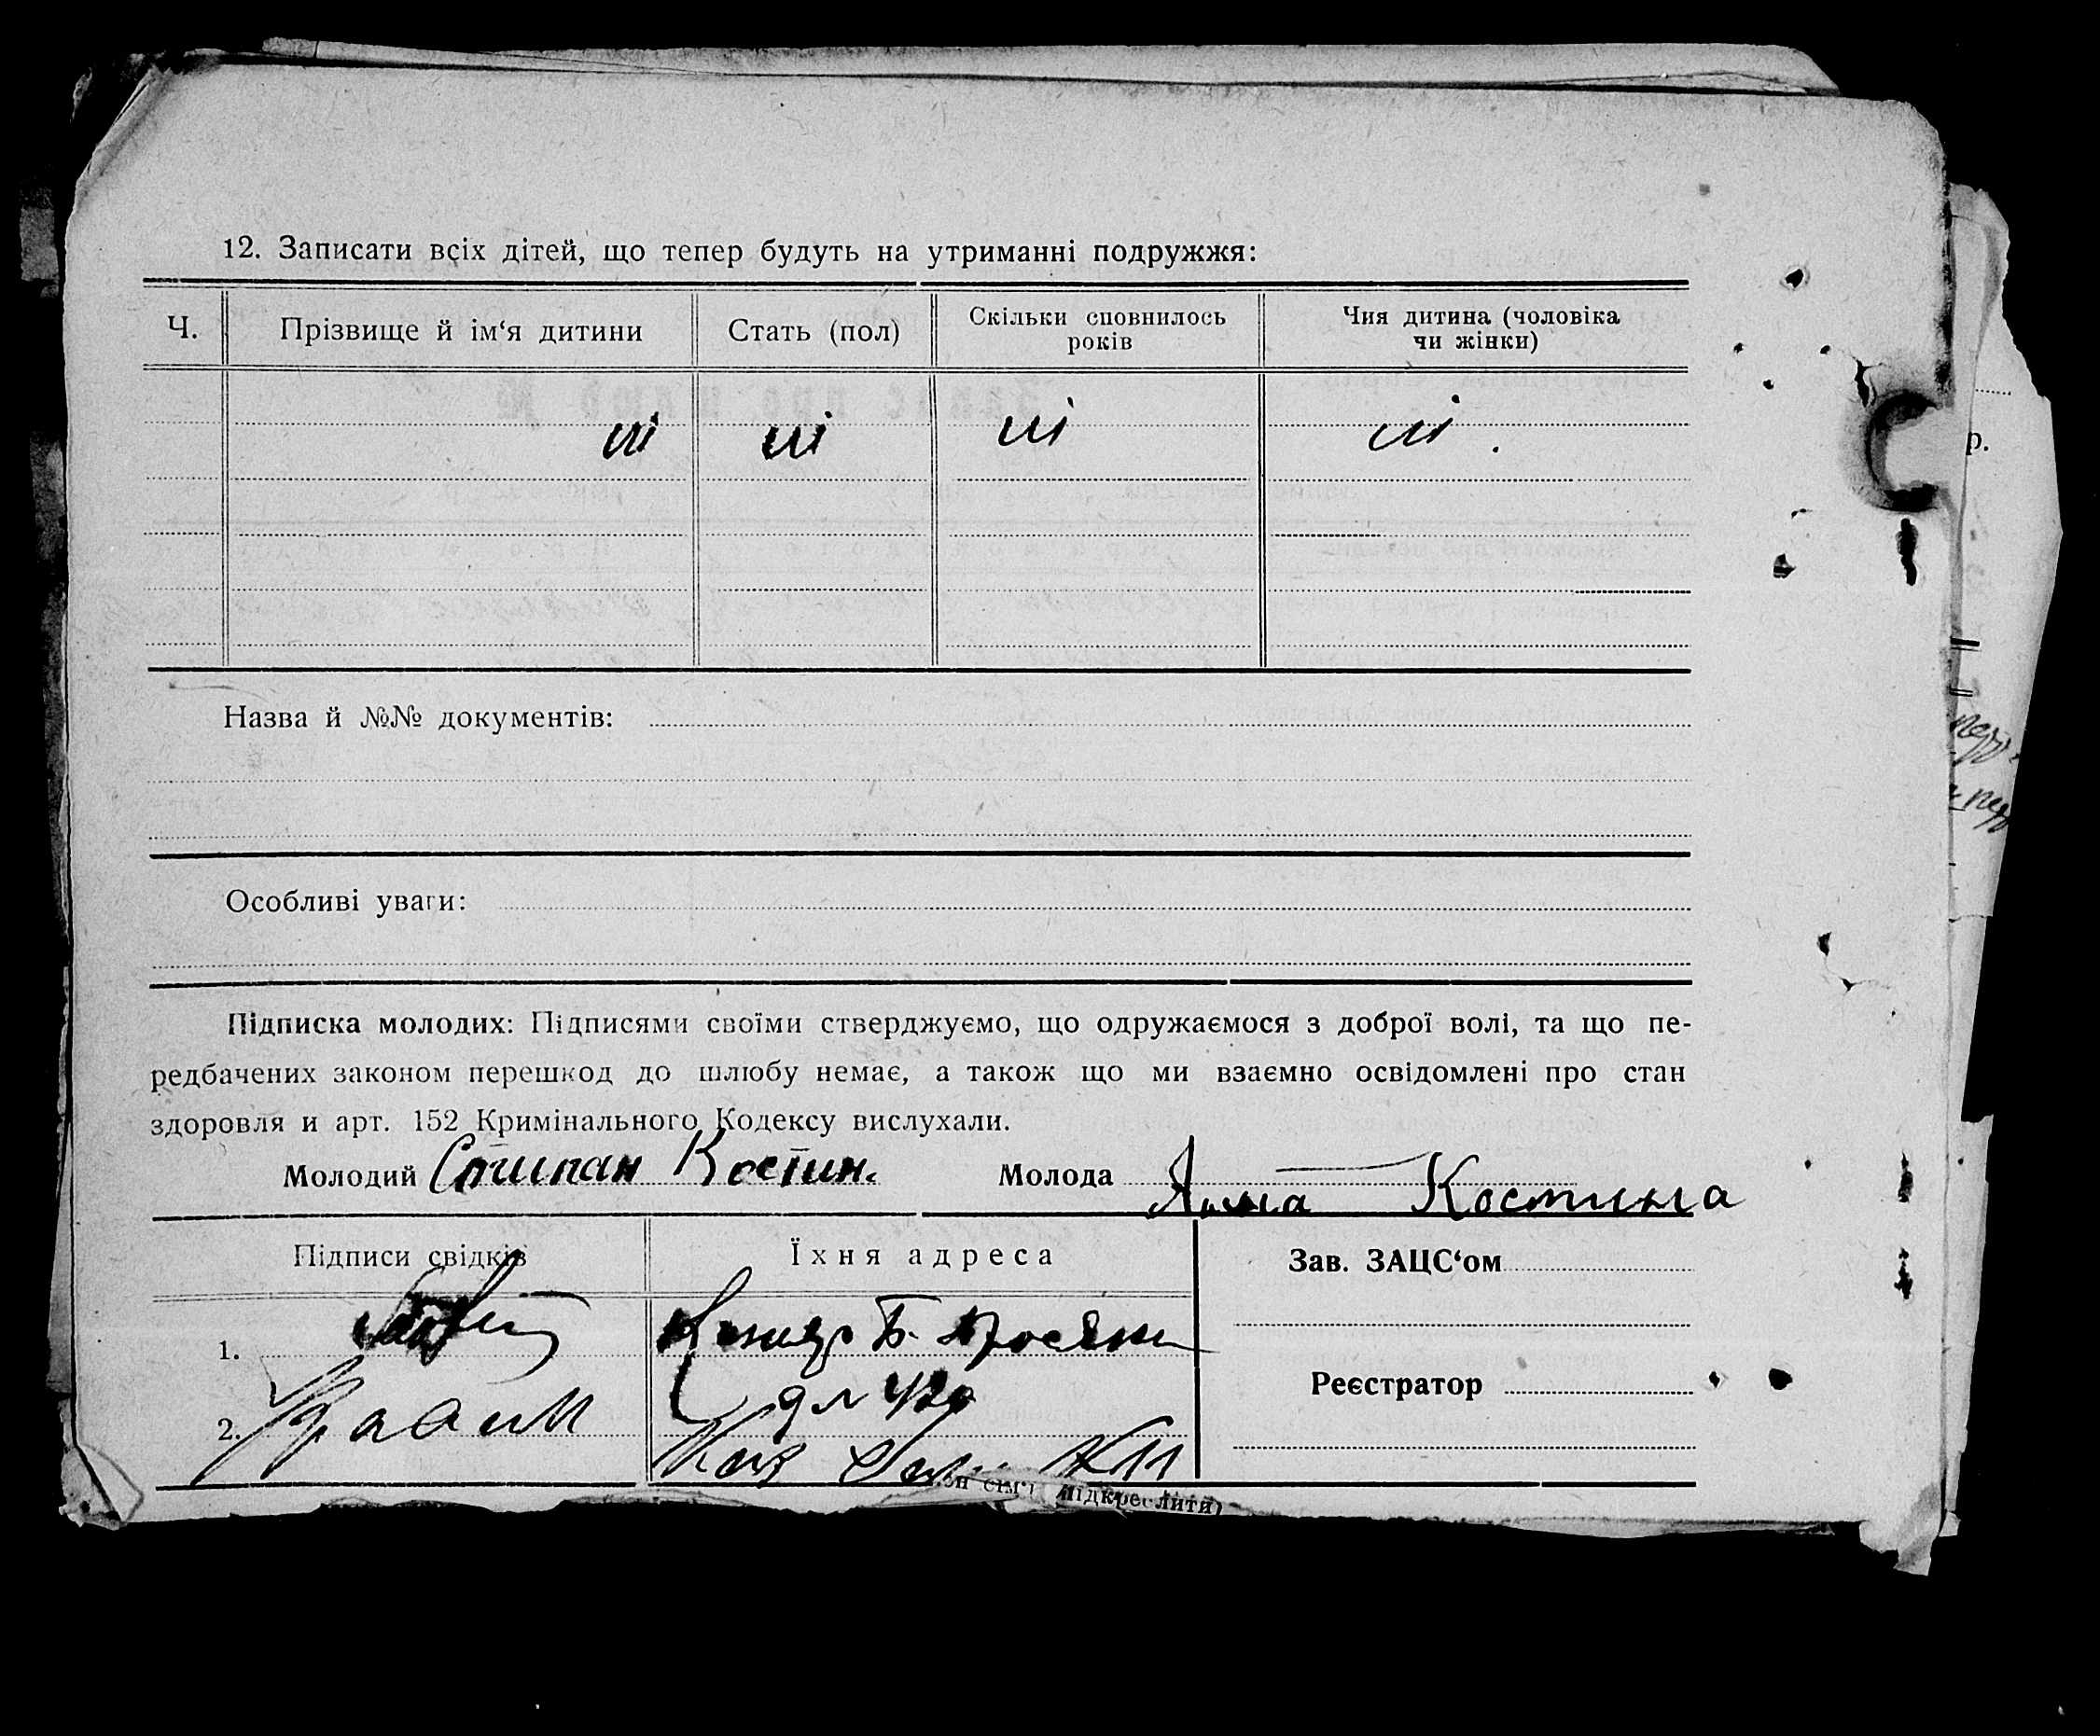 12. Записати всіх дітей, що тепер будуть на утриманні подружжя:
Ч. Прізвище й ім‘я дитини Стать (пол) Скільки сповнилось років Чия дитина (чоловіка чи жінки)
ні ні ні ні.
р.
Назва й №№ документів:
Особливі уваги:
Підписка молодих: Підписями своїми стверджуємо, що одружаємося з доброї волі, та що пе-
редбачених законом перешкод до шлюбу немає, а також що ми взаємно освідомлені про стан
здоровля и арт. 152 Кримінального Кодексу вислухали.
Молодий Стипан Костин. Молода Анна Костина
Підписи свідків Їхня адреса Зав. ЗАЦС‘ом
1.
Реєстратор
2.
№ 11
сім‘ї (підкреслити)